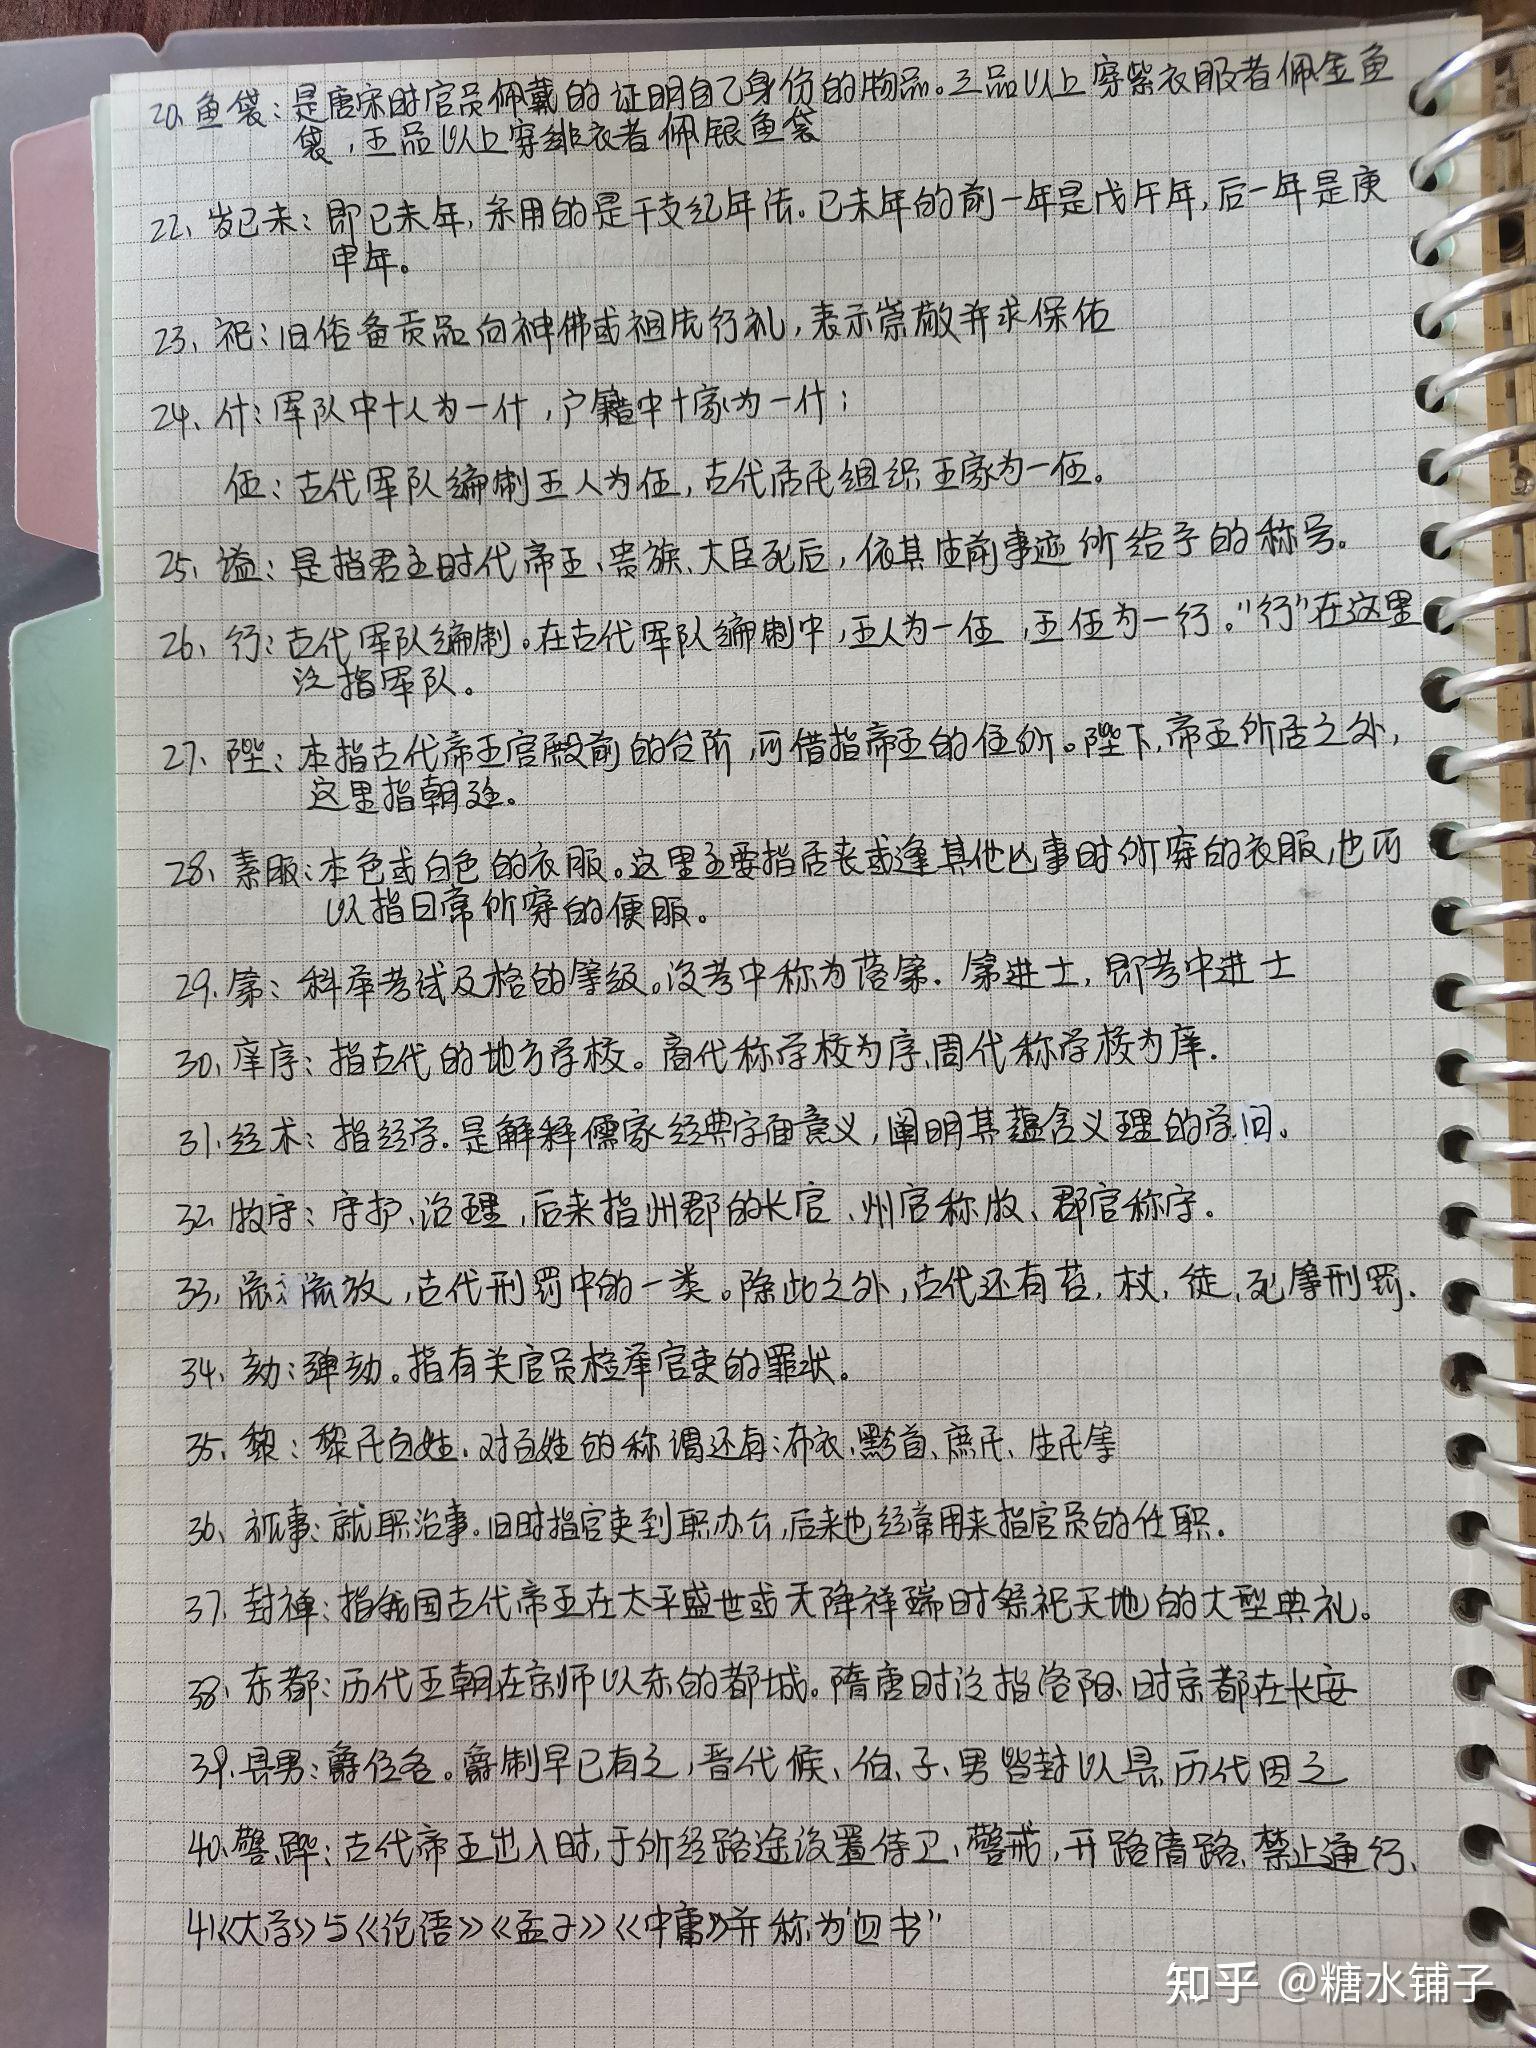 20、鱼袋：是唐宋时官员佩戴的证明自己身份的物品。三品以上穿紫衣服者佩金鱼
袋，五品以上穿绯衣者佩银鱼袋
22、岁己未：即己未年，采用的是干支纪年法。己未年的前一年是戊午年，后一年是庚
申年。
23、祀：旧俗备贡品向神佛或祖先行礼，表示崇敬并求保佑
24、什：军队中十人为一什，户籍中十家为一什；
伍：古代军队编制五人为伍，古代居民组织五家为一伍。
25、谥：是指君主时代帝王、贵族、大臣死后，依其生前事迹所给予的称号。
26、行：古代军队编制。在古代军队编制中，五人为一伍，五伍为一行。"行"在这里
泛指军队。
27、陛：本指古代帝王宫殿前的台阶，可借指帝王的住所。陛下，帝王所居之外，
这里指朝廷。
28、素服：本色或白色的衣服。这里主要指居丧或逢其他凶事时所穿的衣服，也可
以指日常所穿的便服。
29、第：科举考试及格的等级。没考中称为落第．第进士，即考中进士
30、庠序：指古代的地方学校。商代称学校为序、周代称学校为庠．
31、经术：指经学．是解释儒家经典字面意义，阐明其蕴含义理的学问。
32、牧守：守护、治理，后来指州郡的长官、州官称牧、郡官称守．
33、流：流放，古代刑罚中的一类。除此之外，古代还有笞，杖，徒，死等刑罚．
34、劾：弹劾。指有关官员检举官吏的罪状。
35、黎：黎民百姓．对百姓的称谓还有：布衣、黔首、庶民、生民等
36、视事：就职治事．旧时指官吏到职办公，后来也经常用来指官员的任职．
37、封禅：指我国古代帝王在太平盛世或天降祥瑞时祭祀天地的大型典礼。
38、东都：历代王朝在京师以东的都城。隋唐时泛指洛阳、时京都在长安
39、县男：爵位名。爵制早已有之，晋代候、伯、子、男皆封以县，历代因之
40、警跸：古代帝王出入时，于所经路途设置侍卫、警戒，开路清路、禁止通行、
41《大学》与《论语》《孟子》《中庸》并称为"四书"
知乎 @糖水铺子